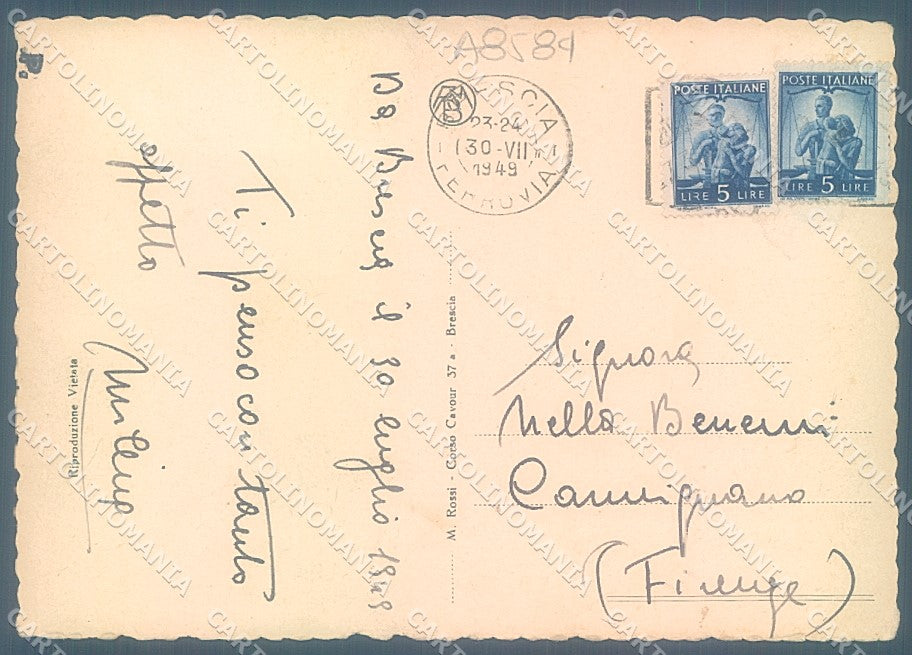 A8589
P.
Da Brescia il 30 luglio 1949
Ti penso con tanto
affetto
Riproduzione Vietata
M. Rossi - Corso Cavour 37a - Brescia
BRESCIA
23-24
30-VII
1949
FERROVIA
POSTE ITALIANE
LIRE 5 LIRE
POSTE ITALIANE
LIRE 5 LIRE
Signora
Nella
Carmignano
(Firenze)
CARTOLINOMANIA